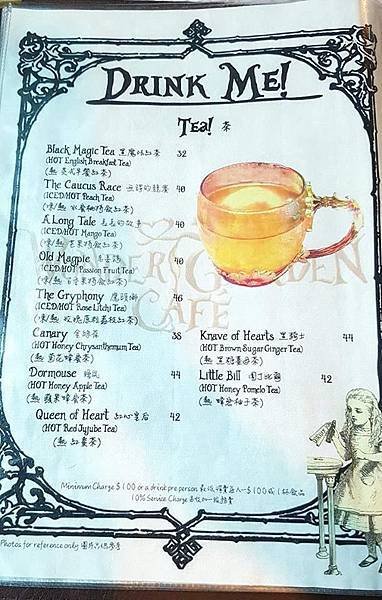 DRINK ME!
Tea! 茶
Black Magic Tea 黑魔法紅茶 32
(HOT English Breakfast Tea)
(熱 英式早餐紅茶)
The Caucus Race 40
(ICED/HOT Peach Tea)
(凍/熱 水蜜桃特飲紅茶)
A Long Tale 長長的故事 40
(ICED/HOT Mango Tea)
(凍/熱 芒果特飲紅茶)
Old Magpie 40
(ICED/HOT Passion Fruit Tea)
(凍/熱 百香果特飲紅茶)
The Gryphony 鷹頭獅 46
(ICED/HOT Rose Litchi Tea)
(凍/熱 玫瑰荔枝紅茶)
Canary 金絲雀 38
(HOT Honey Chrysanthemum Tea)
(熱 菊花蜂蜜茶)
Dormouse 睡鼠 44
(HOT Honey Apple Tea)
(熱 蘋果蜂蜜茶)
Queen of Heart 紅心皇后 42
(HOT Red Jujube Tea)
(熱 紅棗茶)
Knave of Hearts 黑騎士 44
(HOT Brown Sugar Ginger Tea)
(熱 黑糖薑母茶)
Little Bill 園丁比爾 42
(HOT Honey Pomelo Tea)
(熱 蜂蜜柚子茶)
WONDER GARDEN
CAFÉ
Minimum Charge $100 or a drink per person 最低消費每人一$100或1杯飲品
10% Service Charge 另收加一服務費
Photos for reference only 圖片只供參考